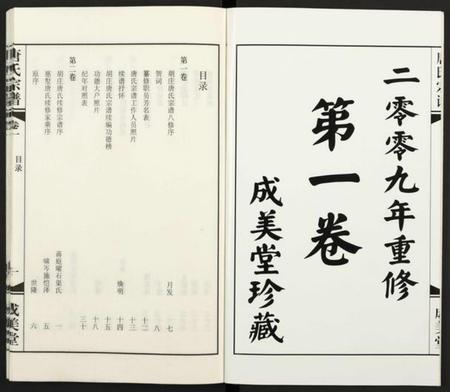 唐氏宗谱
二零零九年重修
第一卷
成美堂珍藏
成美堂
唐氏宗谱
卷一
目录
一
成美堂
目录
第一卷
胡庄唐氏宗谱八修序 月发 七
贺词 八
纂修职员芳名表 十二
唐氏宗谱工作人员照片 十三
续谱抒怀 焕明 十四
胡庄唐氏宗谱续编功德榜 十六
功德大户照片 十八
纪年对照表 三十
第二卷
胡庄唐氏续修宗谱序 蒋庭曜石渠氏 一
慈墅唐氏续修家乘序 啸岑施恺泽 五
原序 世隆 六